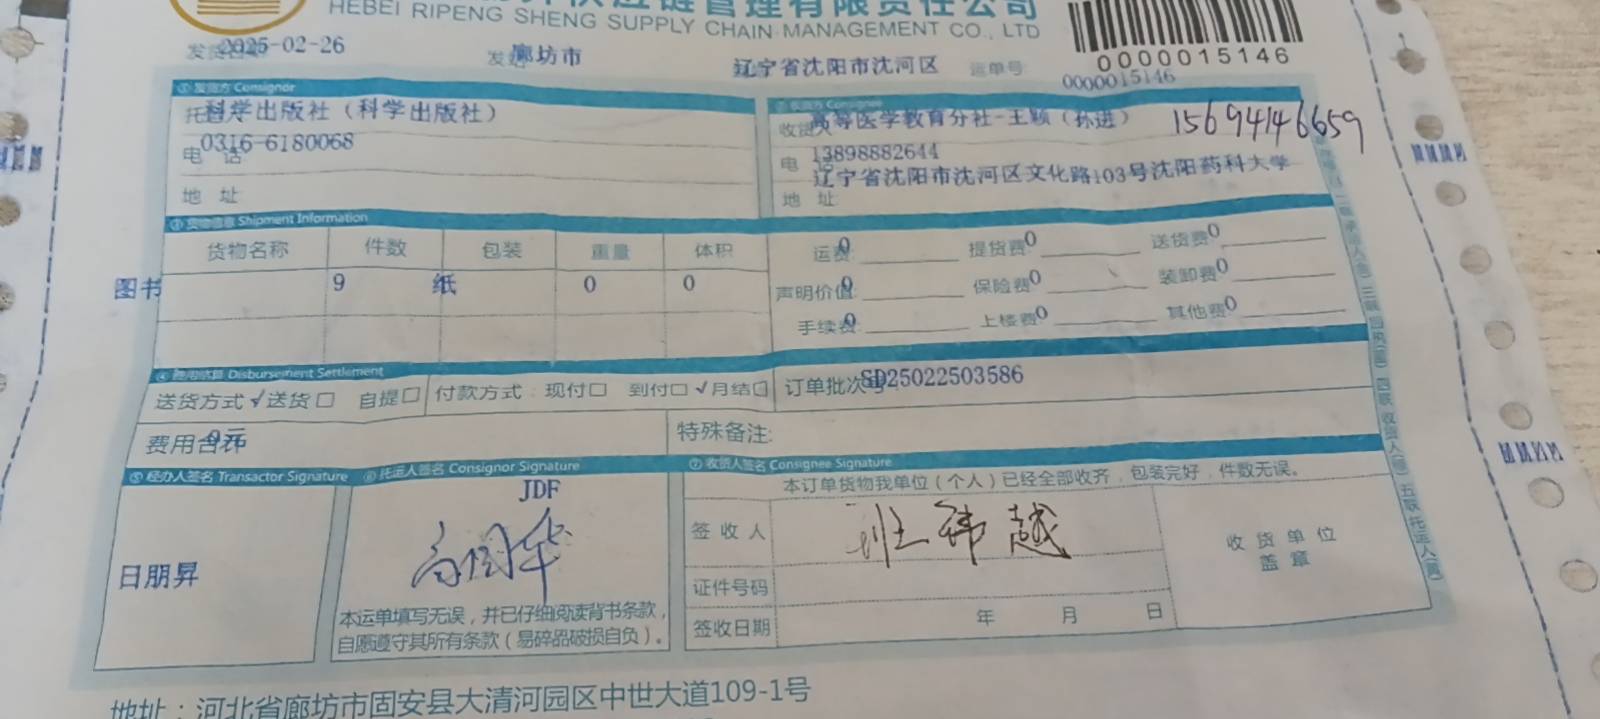 供应链管理有限责任公司
HEBEI RIPENG SHENG SUPPLY CHAIN MANAGEMENT CO., LTD
0000015146
2025-02-26 廊坊市 辽宁省沈阳市沈河区 运单号 0000015146
① 发货方 Consignor
科学出版社（科学出版社）
0316-6180068
电 话
地 址
② 收货方 Consignee
高等医学教育分社-王颖（孙进） 15694146659
电 话 13898882644
辽宁省沈阳市沈河区文化路103号沈阳药科大学
地 址
③ 货物信息 Shipment Information
货物名称 件数 包装 重量 体积
图书 9 纸 0 0
运费 0 提货费 0 送货费 0
声明价值 0 保险费 0 装卸费 0
手续费 0 上楼费 0 其他费 0
④ 费用结算 Disbursement Settlement
送货方式 √送货□ 自提□ 付款方式：现付□ 到付□ √月结□ 订单批次号 SD25022503586
费用合计 0元 特殊备注:
⑤ 经办人签名 Transactor Signature
日朋昇
⑥ 托运人签名 Consignor Signature
JDF
本运单填写无误，并已仔细阅读背书条款，
自愿遵守其所有条款（易碎器破损自负）。
⑦ 收货人签名 Consignee Signature
本订单货物我单位（个人）已经全部收齐，包装完好，件数无误。
签 收 人
证件号码
签收日期 年 月 日
收 货 单 位
盖 章
地址：河北省廊坊市固安县大清河园区中世大道109-1号